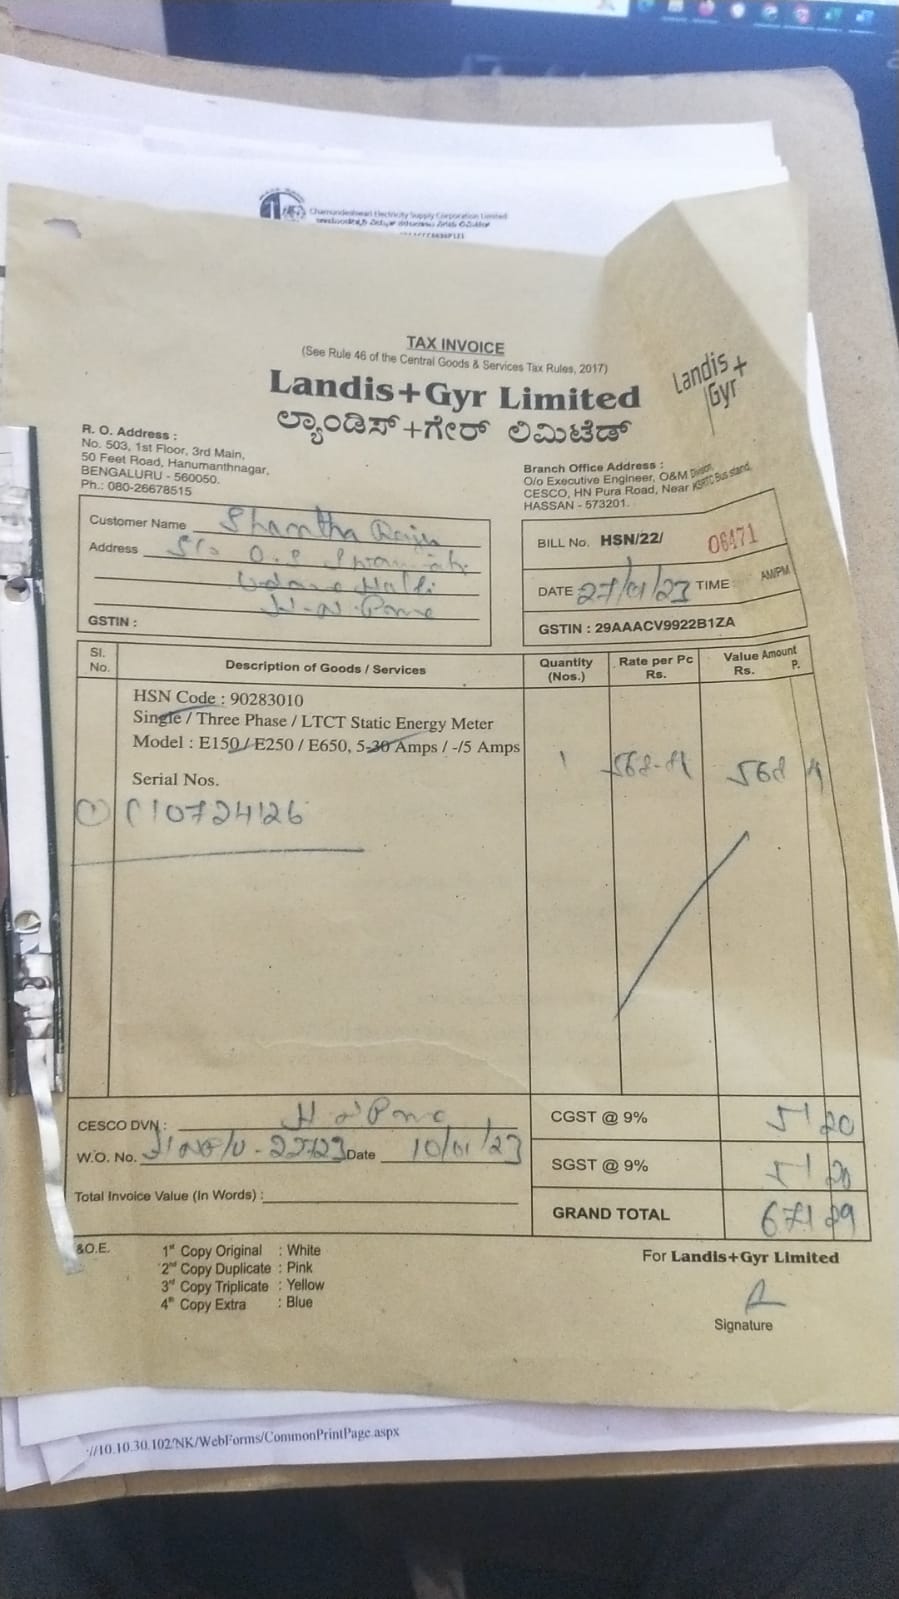 Chamundeshwari Electricity Supply Corporation Limited
TAX INVOICE
(See Rule 46 of the Central Goods & Services Tax Rules, 2017)
Landis+Gyr Limited
ಲ್ಯಾಂಡಿಸ್+ಗೇರ್ ಲಿಮಿಟೆಡ್
Landis+
Gyr
R. O. Address :
No. 503, 1st Floor, 3rd Main,
50 Feet Road, Hanumanthnagar,
BENGALURU - 560050.
Ph.: 080-26678515
Branch Office Address :
O/o Executive Engineer, O&M Division,
CESCO, HN Pura Road, Near KSRTC Bus stand,
HASSAN - 573201.
Customer Name Shantha Raju
Address S/o
H-N-Pura
GSTIN :
BILL No. HSN/22/ 06471
DATE 27/01/23 TIME : AM/PM
GSTIN : 29AAACV9922B1ZA
Sl. No. Description of Goods / Services Quantity (Nos.) Rate per Pc Rs. Value Amount Rs. P.
HSN Code : 90283010
Single / Three Phase / LTCT Static Energy Meter
Model : E150 / E250 / E650, 5-30 Amps / -/5 Amps
1
Serial Nos.
CESCO DVN : H N Pura
W.O. No. Date 10/01/23
Total Invoice Value (In Words) :
CGST @ 9% 51 20
SGST @ 9% 51 20
GRAND TOTAL 671
&O.E.
1st Copy Original : White
2nd Copy Duplicate : Pink
3rd Copy Triplicate : Yellow
4th Copy Extra : Blue
For Landis+Gyr Limited
Signature
://10.10.30.102/NK/WebForms/CommonPrintPage.aspx